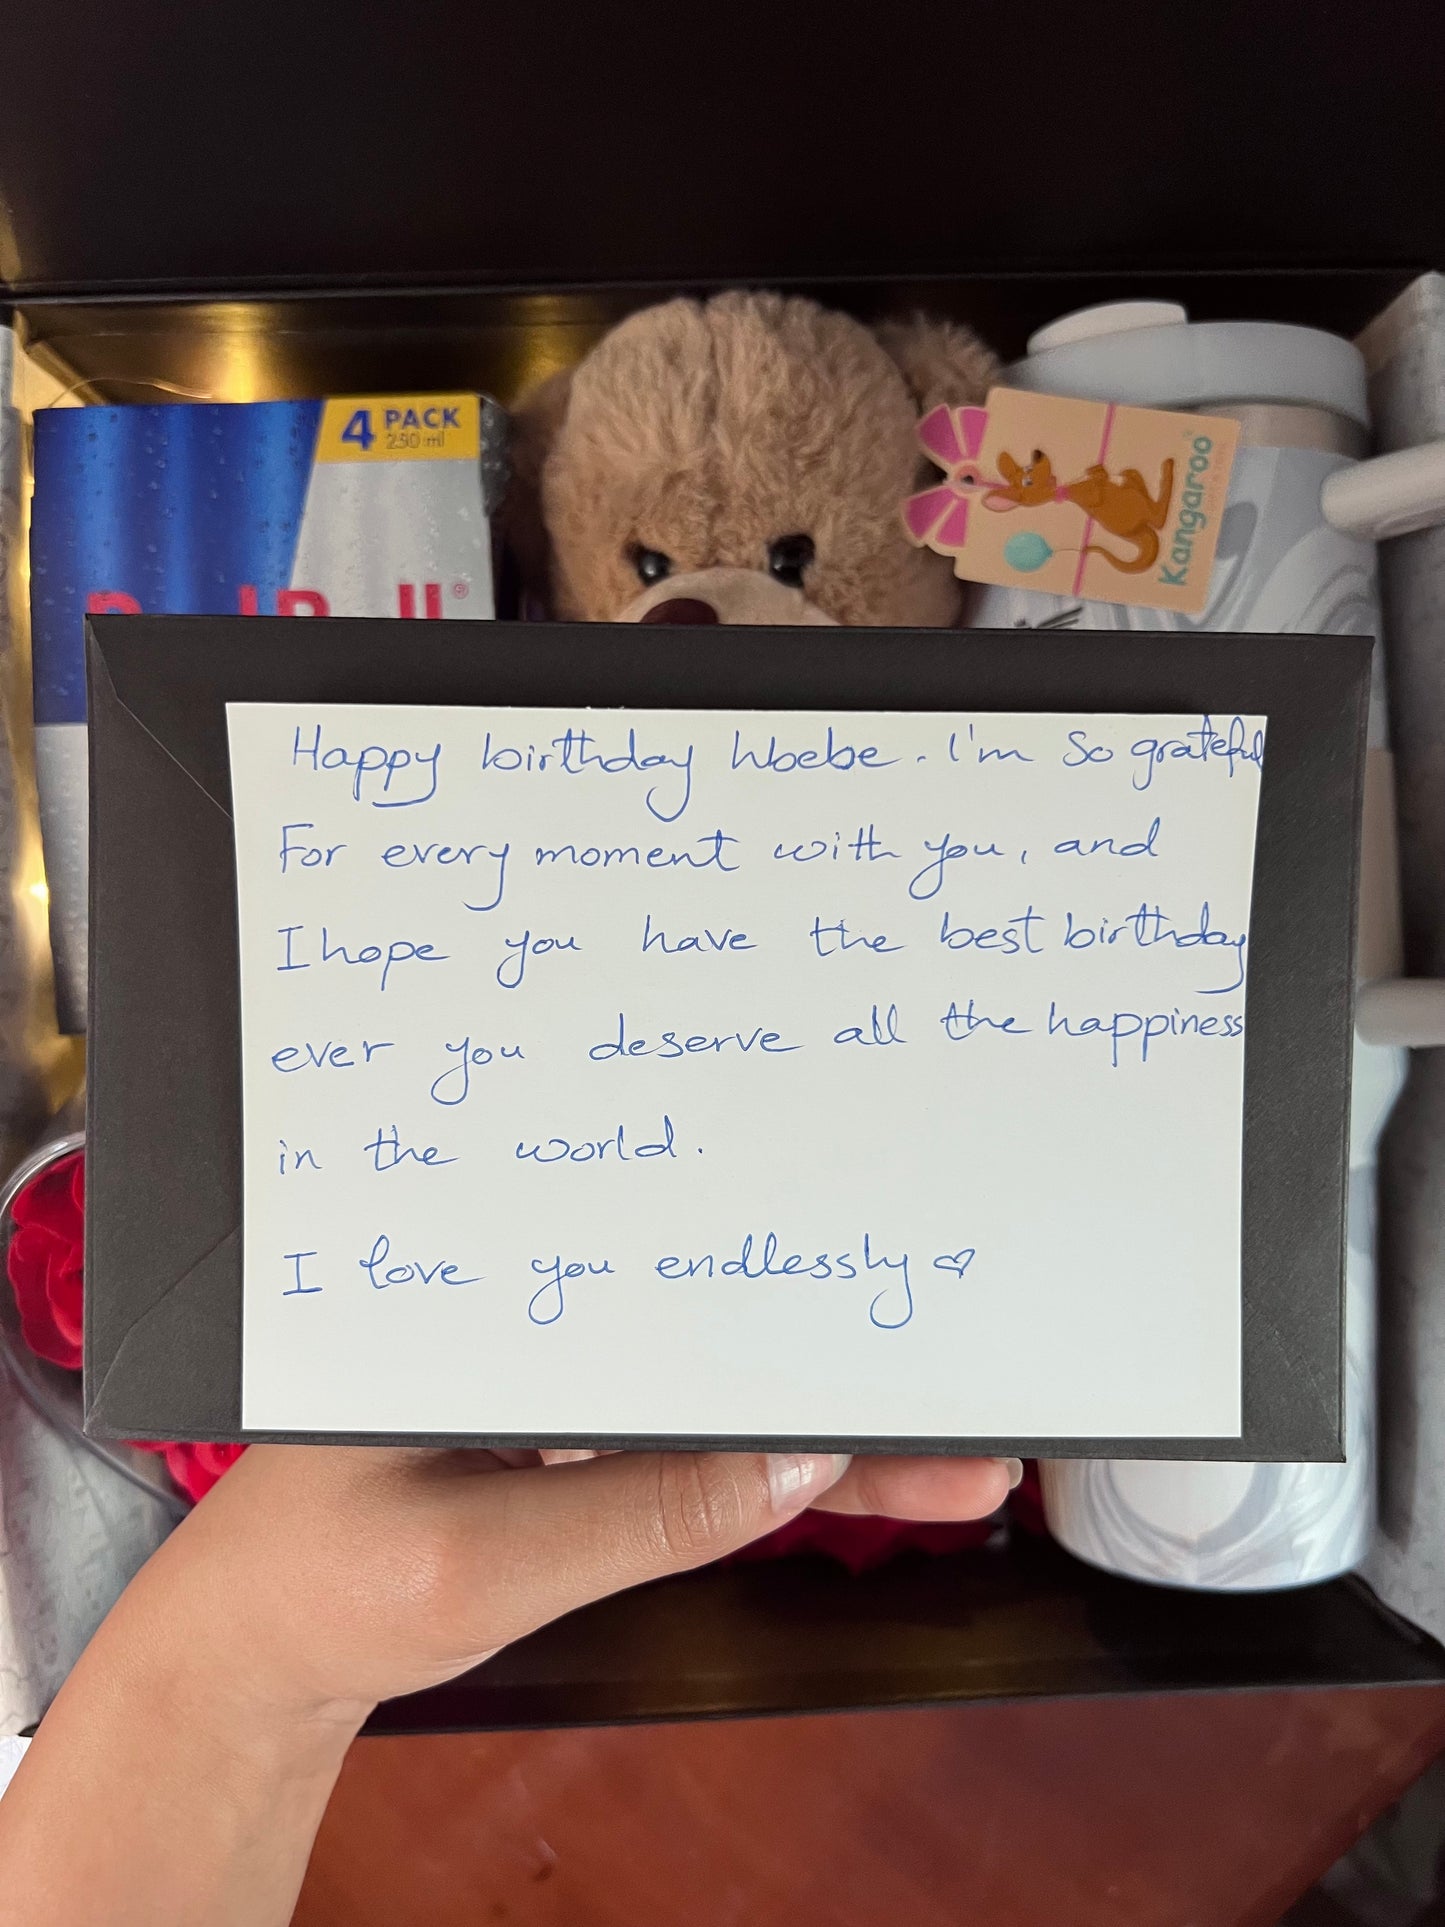 4 PACK
250 ml
Kangaroo
Happy birthday hboebe. I'm So grateful
For every moment with you, and
I hope you have the best birthday
ever you deserve all the happiness
in the world.
I love you endlessly ♡